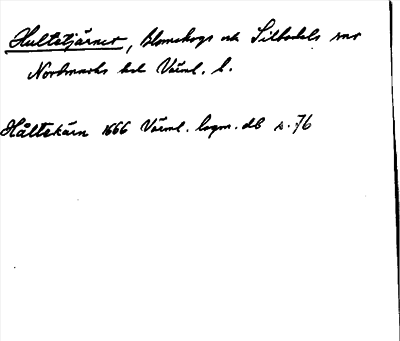 Hultetjärnet, Blomskogs och Silbodals snr
Nordmarks hd Värml. l.
Håltekärn 1666 Värml. lagm. db s. 76